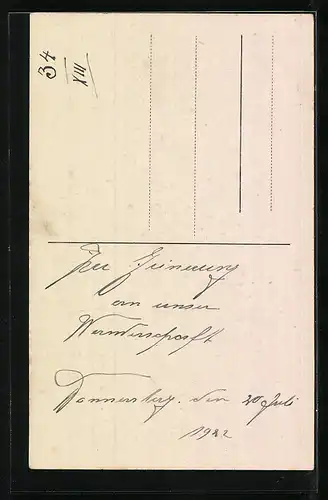 34
XIII
Zur Erinnerung
an unser
Wanderschaft
Donnersberg, den 20 Juli
1922